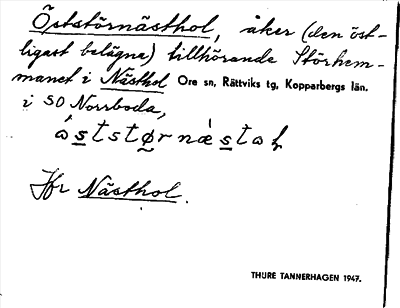 Öststörnästhol, åker (den öst-
ligast belägna) tillhörande Störhem-
manet i Nästhol Ore sn, Rättviks tg, Kopparbergs län.
i SO Norrboda,
Jfr Nästhol.
THURE TANNERHAGEN 1947.